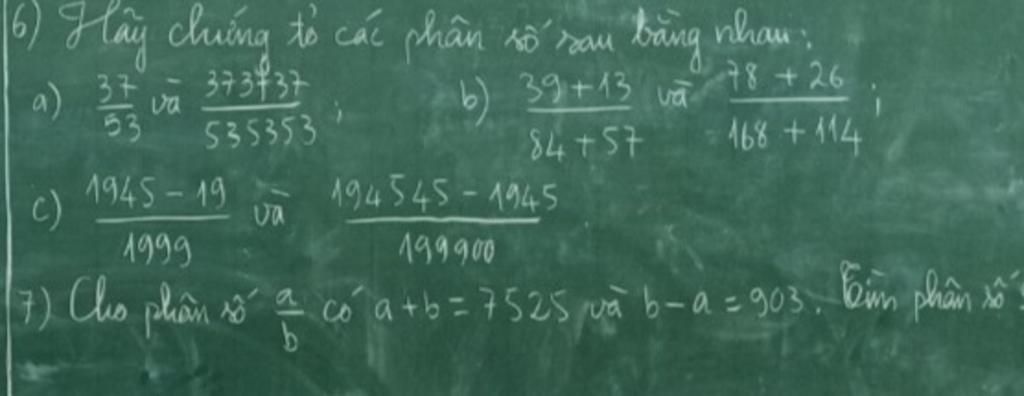 6) Hãy chứng tỏ các phân số sau bằng nhau:
a) 37/53 và 373737/535353 ; b) 39+13/84+57 và 78+26/168+114 ;
c) 1945-19/1999 và 194545-1945/199900
7) Cho phân số a/b có a+b=7525 và b-a=903. Tìm phân số